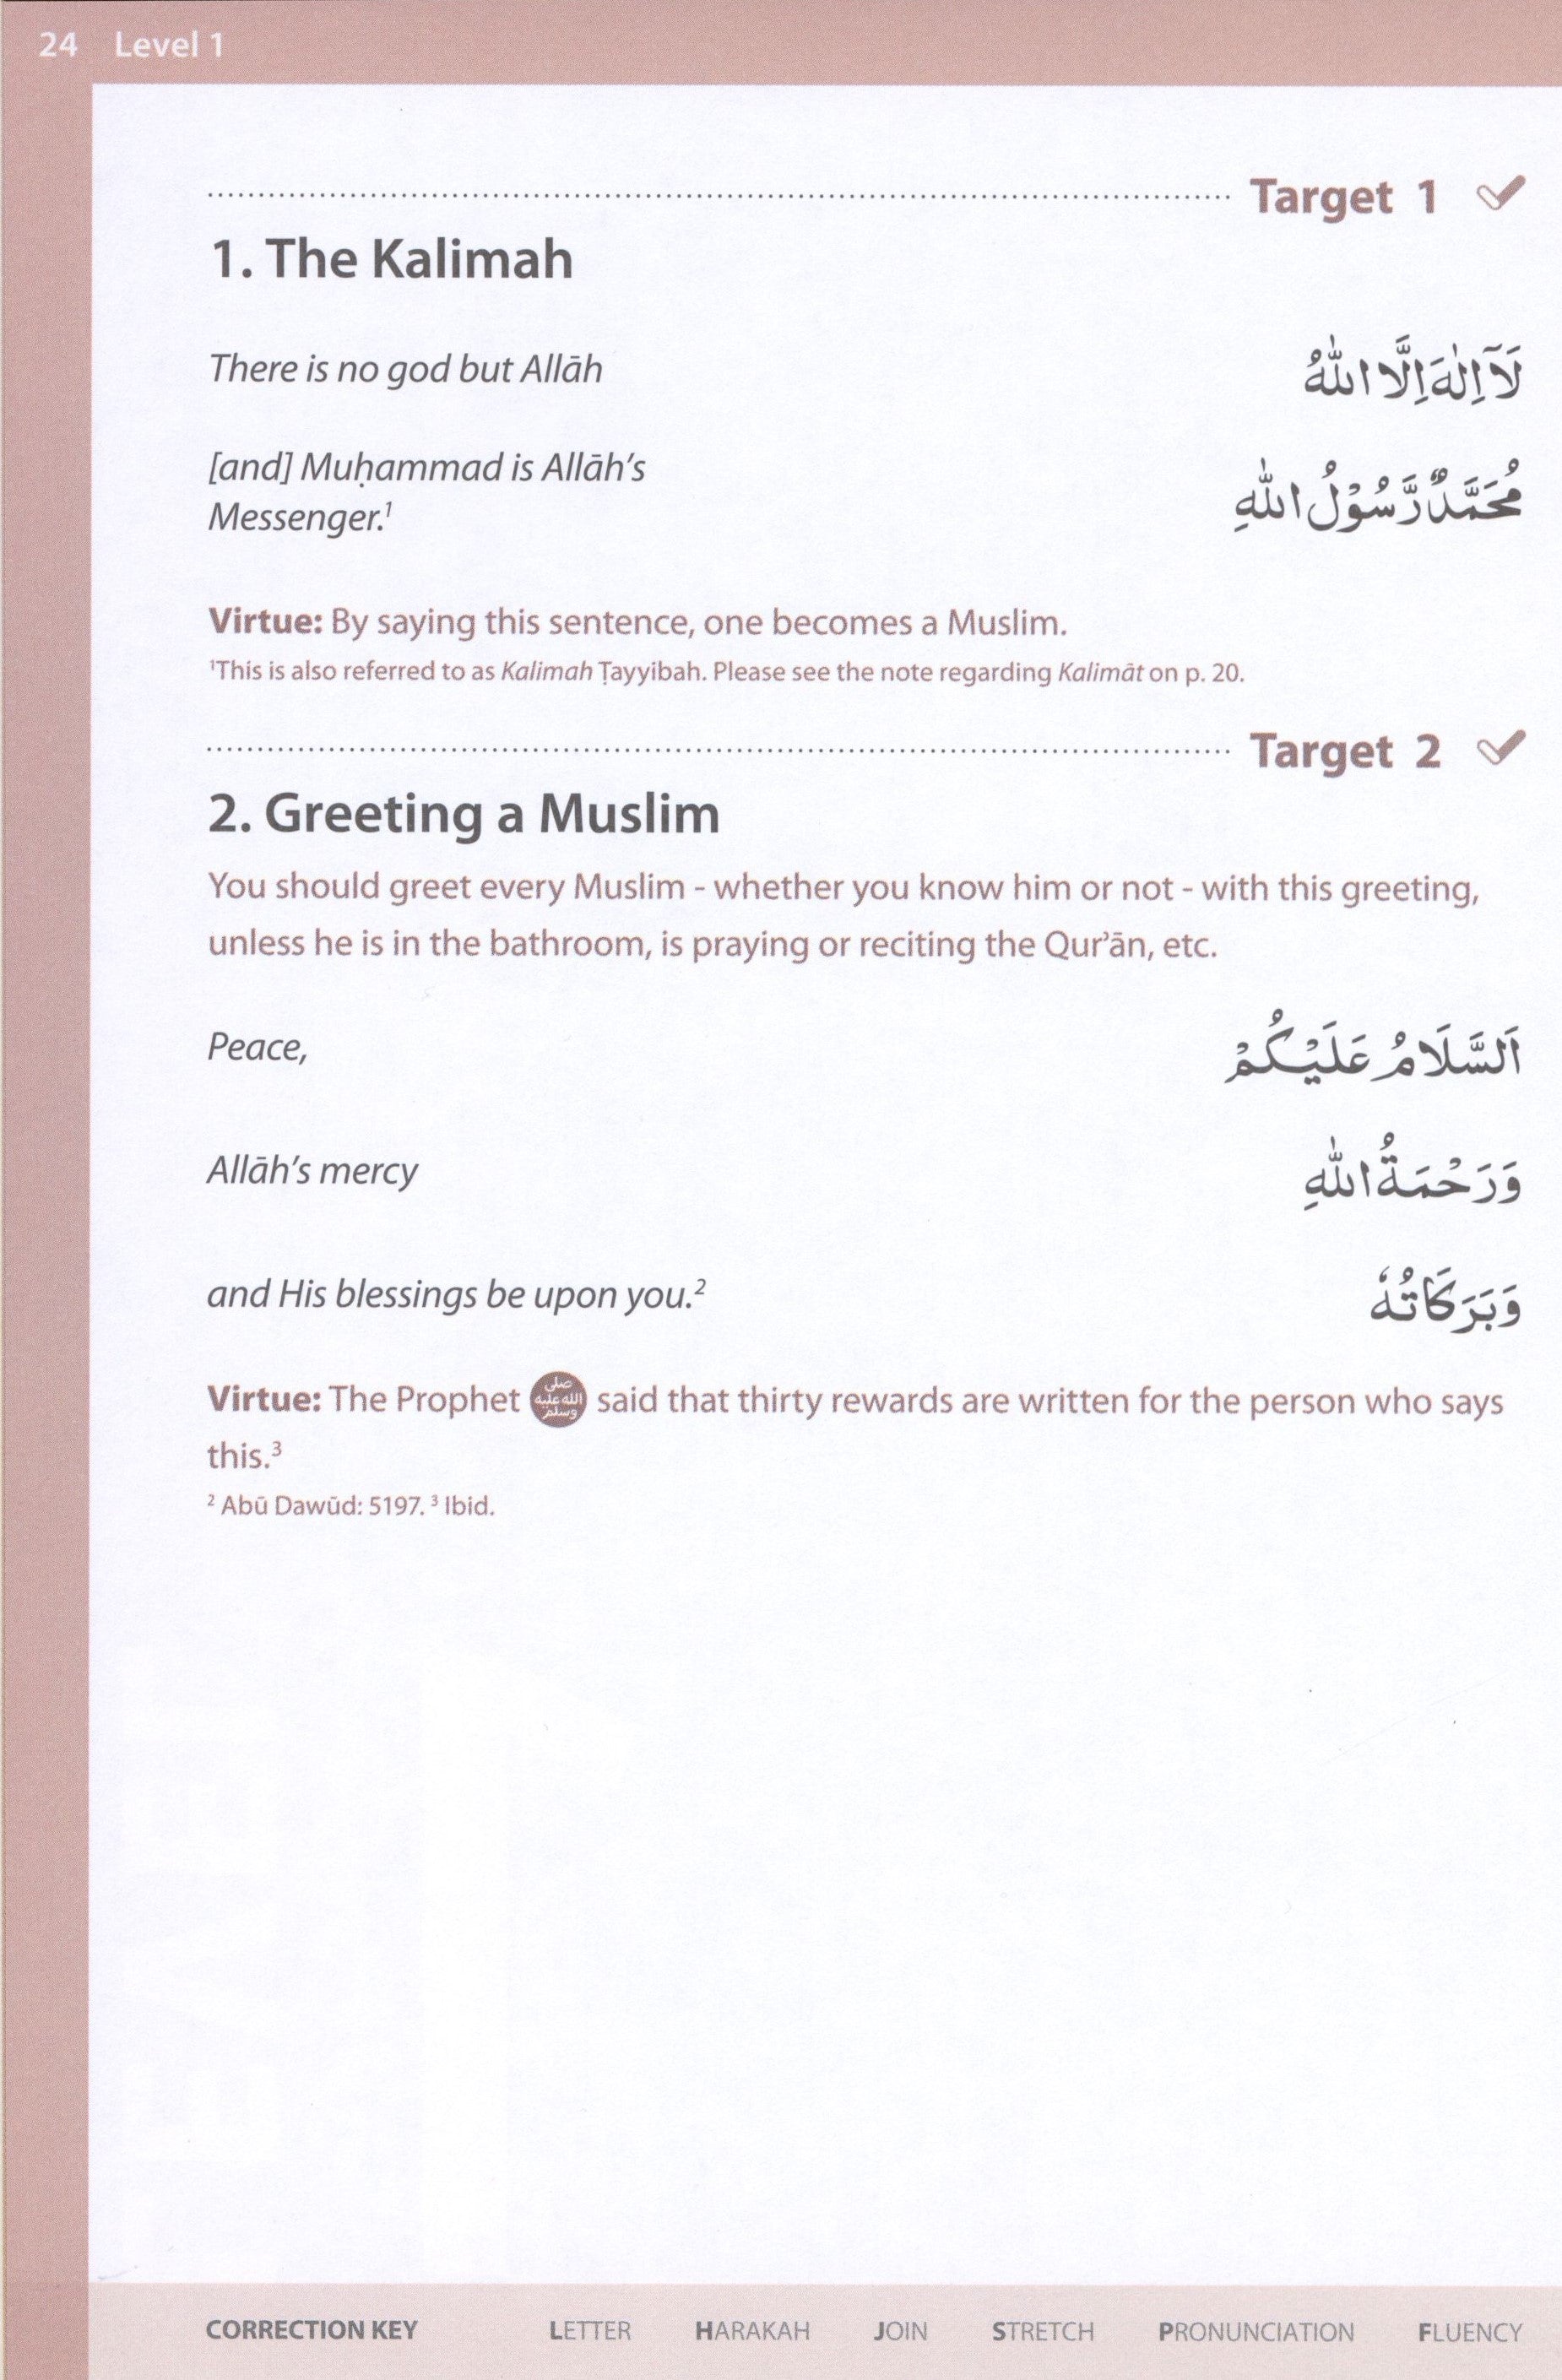 24 Level 1
Target 1
1. The Kalimah
There is no god but Allāh
لَآ اِلٰهَ اِلَّا اللّٰهُ
[and] Muḥammad is Allāh's
Messenger.¹
مُحَمَّدٌ رَّسُوْلُ اللّٰهِ
Virtue: By saying this sentence, one becomes a Muslim.
¹This is also referred to as Kalimah Ṭayyibah. Please see the note regarding Kalimāt on p. 20.
Target 2
2. Greeting a Muslim
You should greet every Muslim - whether you know him or not - with this greeting,
unless he is in the bathroom, is praying or reciting the Qur'ān, etc.
Peace,
اَلسَّلَامُ عَلَيْكُمْ
Allāh's mercy
وَرَحْمَةُ اللّٰهِ
and His blessings be upon you.²
وَبَرَكَاتُهٗ
Virtue: The Prophet صلى الله عليه وسلم said that thirty rewards are written for the person who says
this.³
² Abū Dawūd: 5197. ³ Ibid.
CORRECTION KEY LETTER HARAKAH JOIN STRETCH PRONUNCIATION FLUENCY